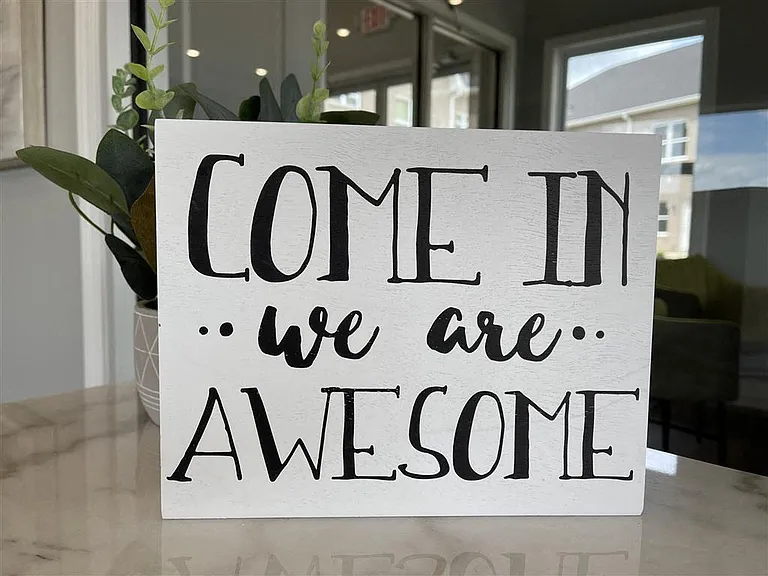 EXIT
COME IN
•• we are ••
AWESOME